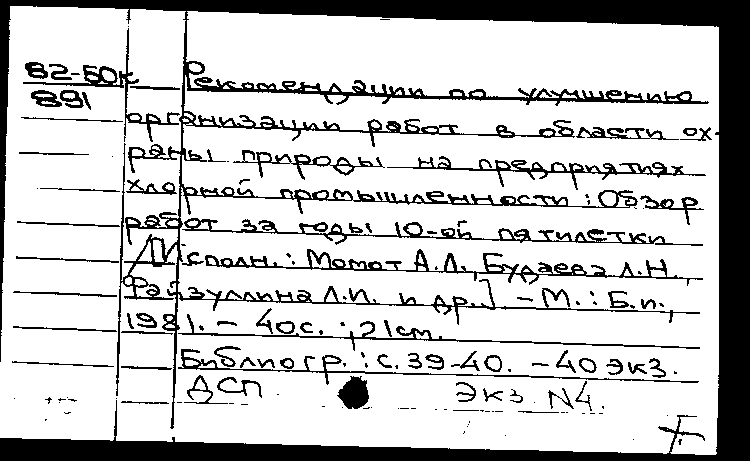 82-50к Рекомендации по улучшению
891
организации работ в области ох-
раны природы на предприятиях
хлорной промышленности : Обзор
работ за годы 10-ой пятилетки
/[Исполн.: Момот А.Л., Будаева Л.Н.,
Файзуллина Л.И. и др.]. – М.: Б.и.,
1981. – 40с. ; 21см.
Библиогр.: с. 39-40. – 40 экз.
ДСП Экз N4.